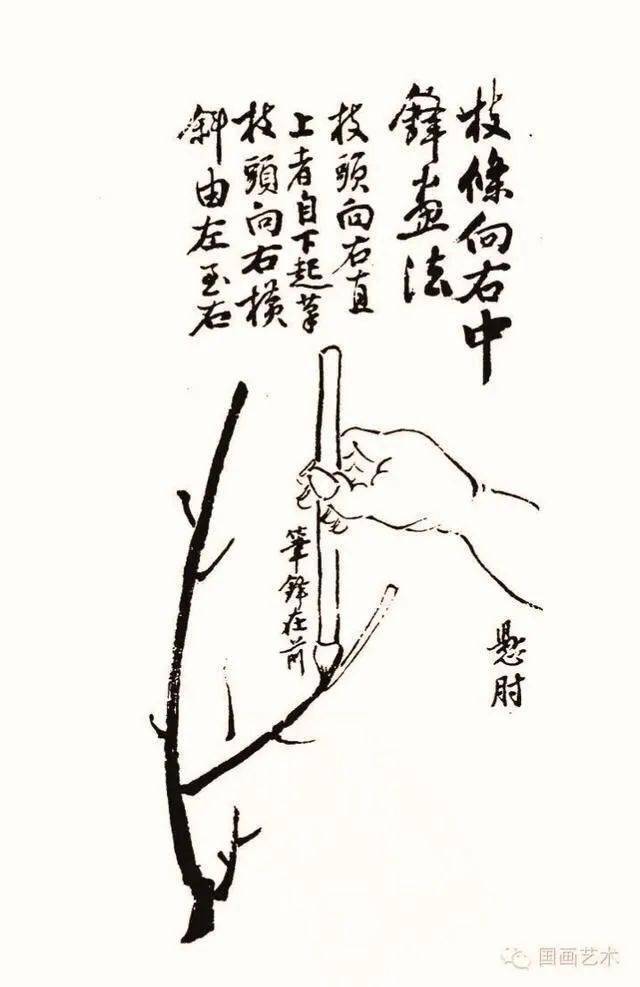 枝條向右中
鋒畫法
枝頭向右直
上者自下起筆
枝頭向右橫
斜由左至右
筆鋒在前
懸肘
国画艺术